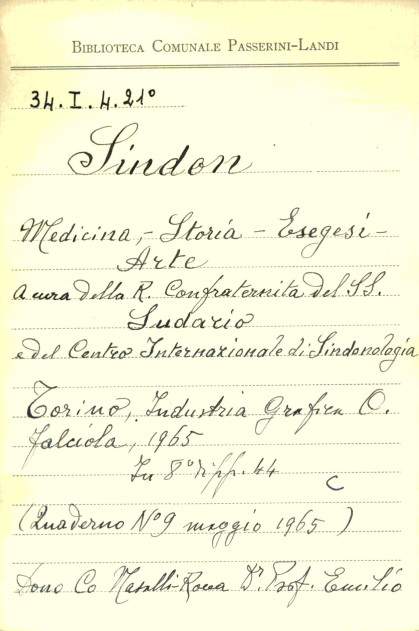 BIBLIOTECA COMUNALE PASSERINI-LANDI
34.I.4.21°
Sindon
Medicina, - Storia - Esegesi -
Arte
A cura della R. Confraternita del SS.
Sudario
e del Centro Internazionale di Sindonologia
Torino, Industria Grafica O.
Falciola, 1965
In 8° di pp. 44
C
(Quaderno N° 9 maggio 1965)
Dono Co Nasalli-Rocca Dr. Prof. Emilio